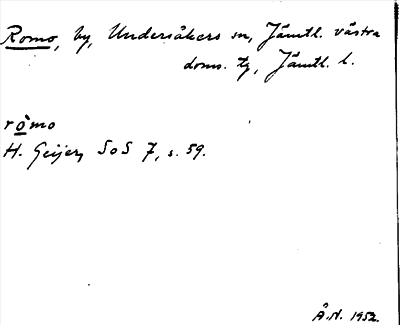 Romo, by, Undersåkers sn, Jämtl. västra
doms. tg, Jämtl. l.
ròmo
H. Geijer, SoS 7, s. 59.
Å.N. 1952.